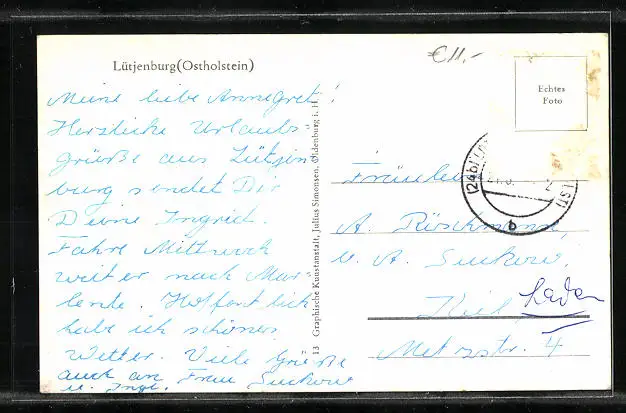 Lütjenburg (Ostholstein)
€11.-
Echtes
Foto
Meine liebe Annegret!
Herzliche Urlaubs-
grüße aus Lütjen
burg sendet Dir
Deine Ingrid.
Fahre Mittwoch
weiter nach Mal-
lente. Hoffentlich
habe ich schönes
Wetter. Viele Grüße
auch an Frau Suckow
u. Inge.
13 Graphische Kunstanstalt, Julius Simonsen, Oldenburg i. H.
(24b)
b
Fräulein
A. Röschmann,
u. A. Suckow,
Kiel,
Laden
Metzstr. 4